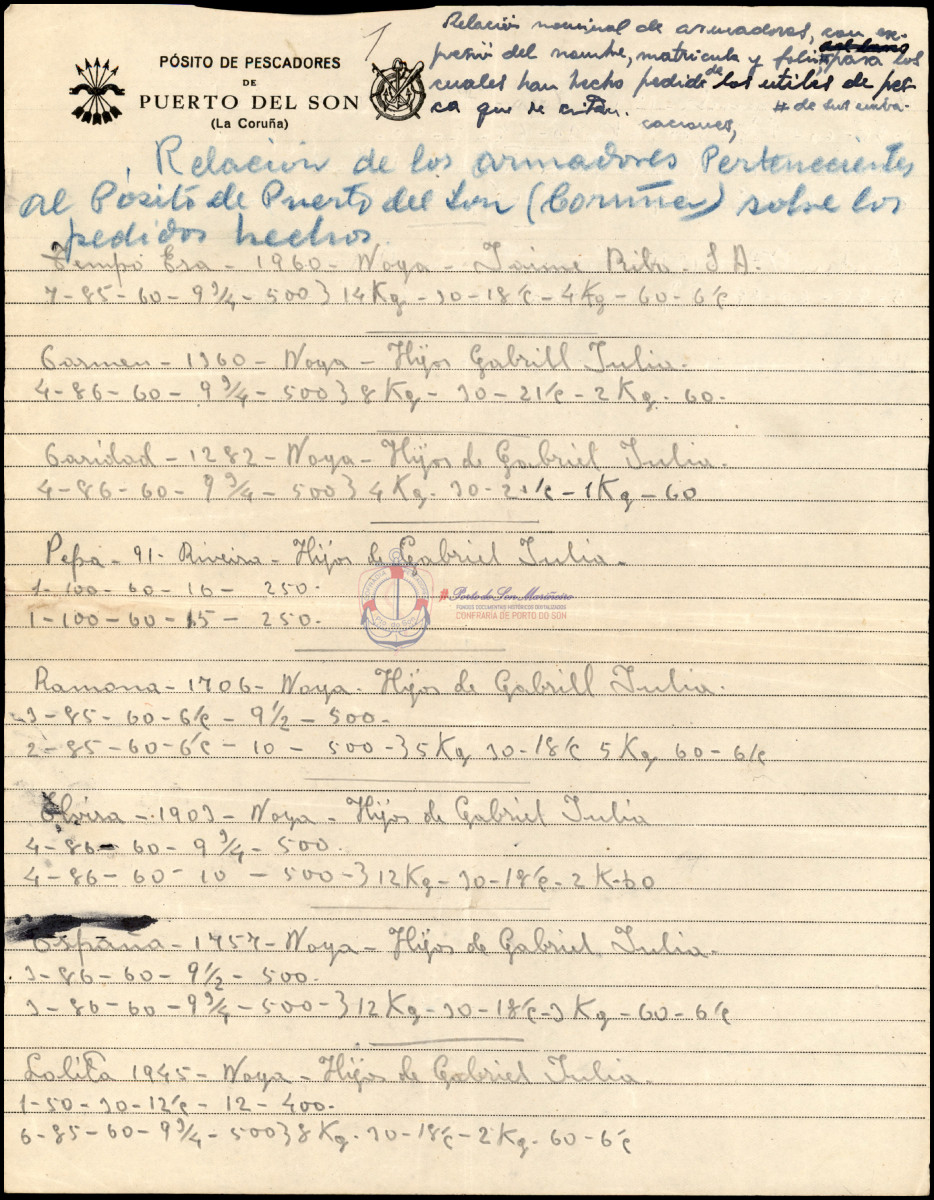 PÓSITO DE PESCADORES
DE
PUERTO DEL SON
(La Coruña)
1
Relación nominal de armadores, con ex-
presión del nombre, matricula y folio # para los
cuales han hecho pedido de los utiles de pes-
ca que se citan.
# de sus emba-
caciones,
Relación de los armadores Pertenecientes
al Pósito de Puerto del Son (Coruña) sobre los
pedidos hechos
Tempo Era - 1960 - Noya - Jaime Ribo. S A.
7-85-60-9 3/4-500} 14 Kg - 30-18/c-4 Kg-60-6/c
Carmen - 1360 - Noya - Hijos Gabrill Julia.
4-86-60-9 3/4-500} 8 Kg - 30-21/c-2 Kg. 60.
Caridad - 1282 - Noya - Hijos de Gabriel Julia.
4-86-60-9 3/4-500} 4 Kg. 30-21/c-1 Kg-60
Pepa - 91- Riveira - Hijos de Gabriel Julia.
1-100-60-16-250.
1-100-60-15-250.
Porto do Son Mariñeiro
FONDOS DOCUMENTAIS HISTÓRICOS DIXITALIZADOS
CONFRARÍA DE PORTO DO SON
Ramona - 1706 - Noya. Hijos de Gabrill Julia.
3-85-60-6/c-9 1/2-500-
2-85-60-6/c-10-500-} 5 Kg 30-18/c 5 Kg 60-6/c
Elvira - 1903 - Noya - Hijos de Gabriel Julia
4-86-60-9 3/4-500.
4-86-60-10-500-} 12 Kg-30-18/c-2 K-60
España - 1757 - Noya - Hijos de Gabriel Julia.
3-86-60-9 1/2-500.
3-86-60-9 3/4-500-} 12 Kg-30-18/c-3 Kg-60-6/c
Lolita 1945 - Noya - Hijos de Gabriel Julia.
1-50-30-12/c-12-400.
6-85-60-9 3/4-500} 8 Kg. 30-18/c-2 Kg. 60-6/c